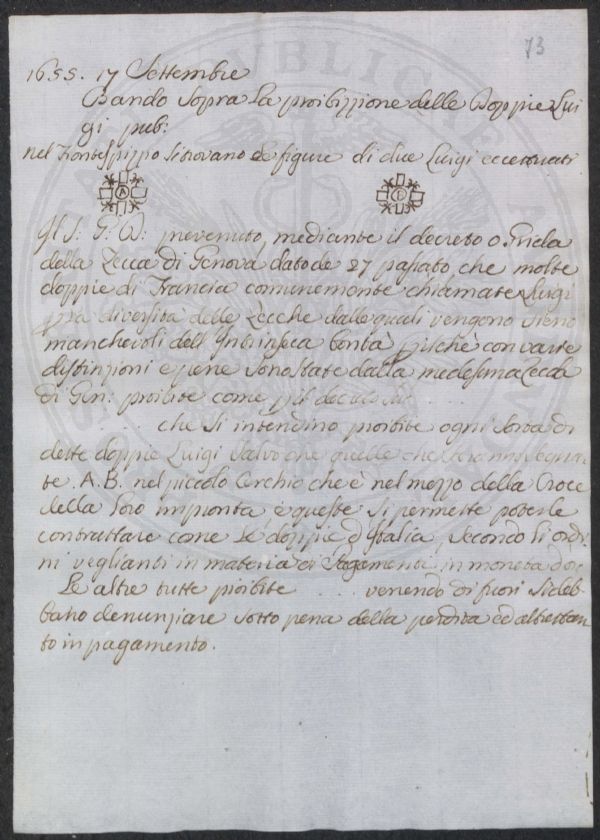 73
1655. 17 Settembre
Bando Sopra La proibizzione delle Doppie Lui
gi pub:
nel frontespizio Si trovano Le figure di due Luigi eccettuati
A P
Il S: G. D: prevenuto, mediante il decreto o Grida
della Zecca di Genova dato de 27 passato, che molte
doppie di Francia comunemente chiamate Luigi
p la diversità delle Zecche dalle quali vengono sieno
manchevoli dell'Intrinseca bontà p il che con varie
distinzioni e pene Sono State dalla medesima Zecca
di Gen: proibite come p il decreto
che Si intendino proibite ogni Sorta di
dette doppie Luigi Salvo che quelle che Saranno Segna
te A. B. nel piccolo Cerchio che è nel mezzo della Croce
della loro impronta e queste Si permette poterle
contrattare come Le doppie d'Italia, Secondo li ordi
ni veglianti in materia di Pagamenti in moneta d'oro
Le altre tutte proibite . . . venendo di fuori Si deb
bano denunziare Sotto pena della perdita ed altrettan
to in pagamento.